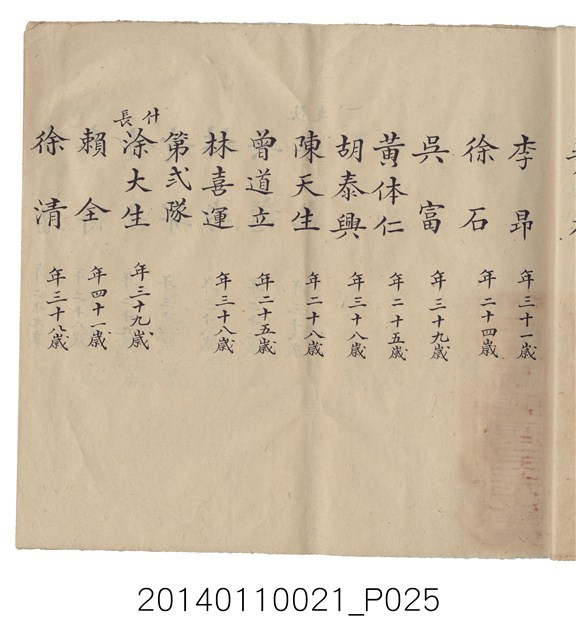 李昂 年三十一歲
徐石 年二十四歲
吳富 年三十九歲
黃体仁 年二十五歲
胡泰興 年三十八歲
陳天生 年二十八歲
曾道立 年二十五歲
林喜運 年三十八歲
第弍隊
什長 涂大生 年三十九歲
賴全 年四十一歲
徐清 年三十八歲
20140110021_P025